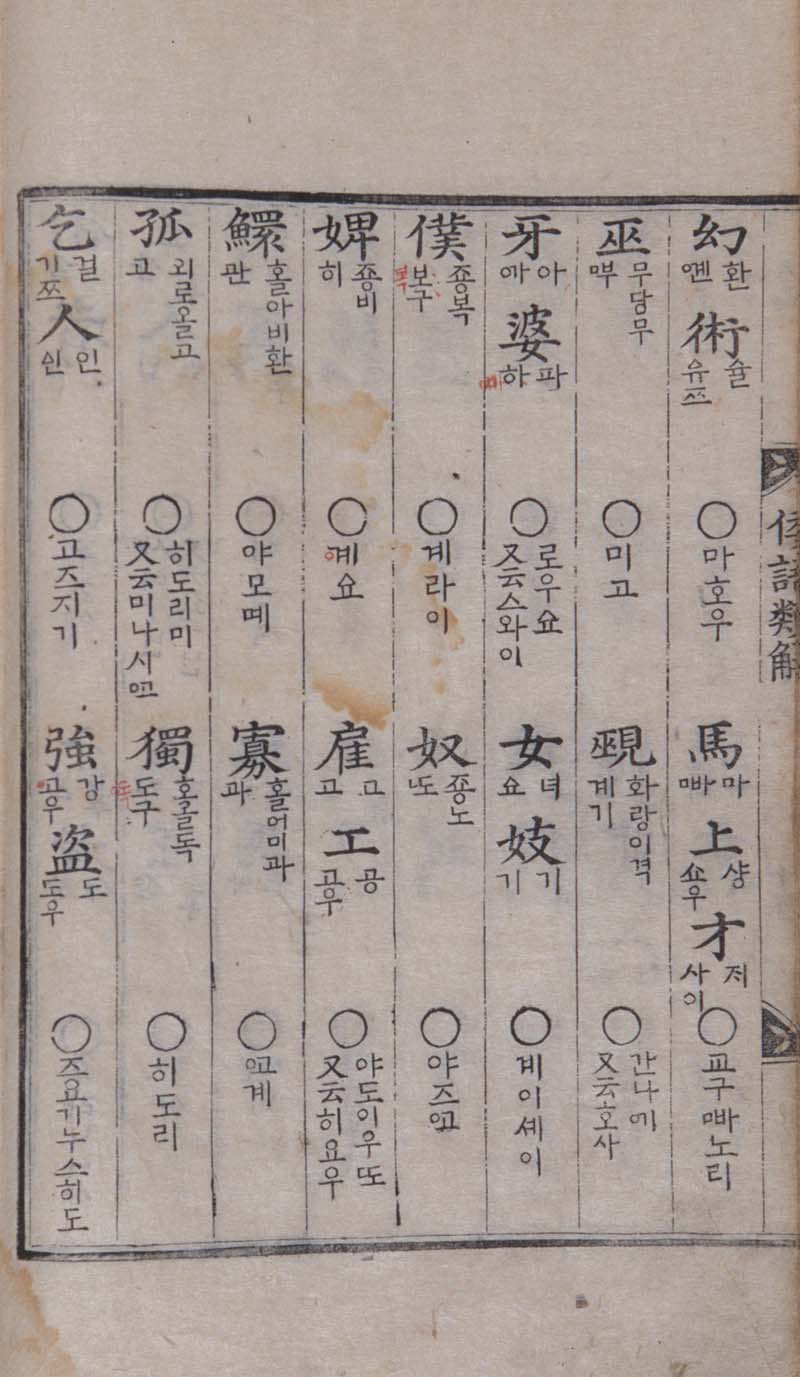 倭語類解
幻 환 옌 術 슐 슈쯔 ○ 마호우 馬 마 빠 上 샹 쇼우 才 ᄌᆡ 사이 ○ 교구빠노리
巫 무당무 뿌 ○ 미고 覡 화랑이격 계기 ○ 간나ᅁᅵ 又云호사
牙 아 ᅁᅡ 婆 파 하 ○ 로우쇼 又云스와이 女 녀 쇼 妓 기 기 ○ 계이셰이
僕 죵복 보구 ○ 계라이 奴 죵노 또 ○ 야즈ᅁᅩ
婢 죵비 히 ○ ᅁᅨ쇼 雇 고 고 工 공 고우 ○ 야도이우또 又云히요우
鰥 홀아비환 관 ○ 야모몌 寡 홀어미과 과 ○ ᅁᅩ계
孤 외로올고 고 ○ 히도리미 又云미나시ᅁᅩ 獨 홀독 도구 ○ 히도리
乞 걸 기쯔 人 인 쉰 ○ 고즈지기 強 강 고우 盜 도 도우 ○ 즈요기누스히도